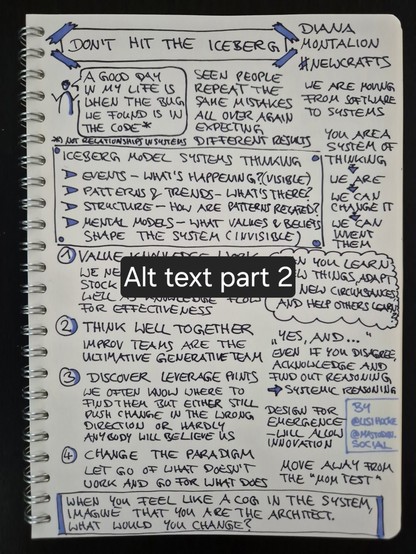 DON'T HIT THE ICEBERG
DIANA
MONTALION
#NEWCRAFTS
A GOOD DAY
IN MY LIFE IS
WHEN THE BUG
WE FOUND IS IN
THE CODE*
*) NOT RELATIONSHIPS IN SYSTEMS
SEEN PEOPLE
REPEAT THE
SAME MISTAKES
ALL OVER AGAIN
EXPECTING
DIFFERENT RESULTS
WE ARE MOVING
FROM SOFTWARE
TO SYSTEMS
YOU ARE A
SYSTEM OF
THINKING
WE ARE
WE CAN
CHANGE IT
WE CAN
INVENT
THEM
ICEBERG MODEL SYSTEMS THINKING
EVENTS – WHAT'S HAPPENING? (VISIBLE)
PATTERNS & TRENDS – WHAT'S THERE?
STRUCTURE – HOW ARE PATTERNS RELATED?
MENTAL MODELS – WHAT VALUES & BELIEFS
SHAPE THE SYSTEM (INVISIBLE)
① VALUE KNOWLEDGE WORK
WE
STOCK
WELL AS KNOWLEDGE FLOW
FOR EFFECTIVENESS
YOU LEARN
THINGS, ADAPT
NEW CIRCUMSTANCES
AND HELP OTHERS LEARN
Alt text part 2
② THINK WELL TOGETHER
IMPROV TEAMS ARE THE
ULTIMATIVE GENERATIVE TEAM
"YES, AND..."
EVEN IF YOU DISAGREE,
ACKNOWLEDGE AND
FIND OUT REASONING
SYSTEMIC REASONING
③ DISCOVER LEVERAGE POINTS
WE OFTEN KNOW WHERE TO
FIND THEM BUT EITHER STILL
PUSH CHANGE IN THE WRONG
DIRECTION OR HARDLY
ANYBODY WILL BELIEVE US
DESIGN FOR
EMERGENCE
– WILL ALLOW
INNOVATION
BY
@LISIHOCKE
@MASTODON.
SOCIAL
④ CHANGE THE PARADIGM
LET GO OF WHAT DOESN'T
WORK AND GO FOR WHAT DOES
MOVE AWAY FROM
THE "MOM TEST"
WHEN YOU FEEL LIKE A COG IN THE SYSTEM,
IMAGINE THAT YOU ARE THE ARCHITECT.
WHAT WOULD YOU CHANGE?